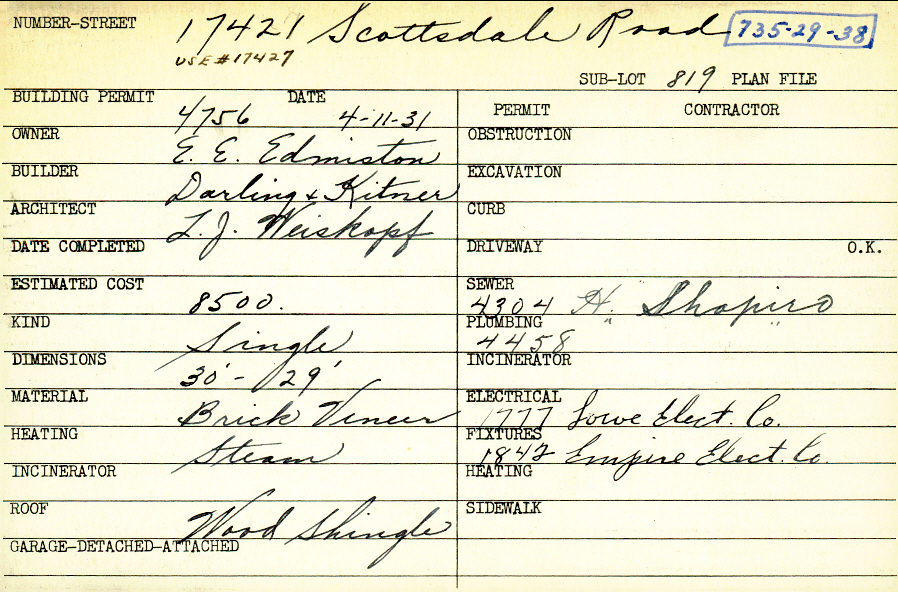 NUMBER-STREET 17421 Scottsdale Road 735-29-38
USE #17427
SUB-LOT 819 PLAN FILE
BUILDING PERMIT 4756 DATE 4-11-31
PERMIT CONTRACTOR
OWNER E. E. Edmiston
OBSTRUCTION
BUILDER Darling & Kitner
EXCAVATION
ARCHITECT L. J. Weiskopf
CURB
DATE COMPLETED
DRIVEWAY O.K.
ESTIMATED COST 8500.
SEWER 4304 H. Shapiro
KIND Single
PLUMBING 4458 " "
DIMENSIONS 30' - 29'
INCINERATOR
MATERIAL Brick Veneer
ELECTRICAL 1777 Lowe Elect. Co.
HEATING Steam
FIXTURES 1842 Empire Elect. Co.
INCINERATOR
HEATING
ROOF Wood Shingle
SIDEWALK
GARAGE-DETACHED-ATTACHED